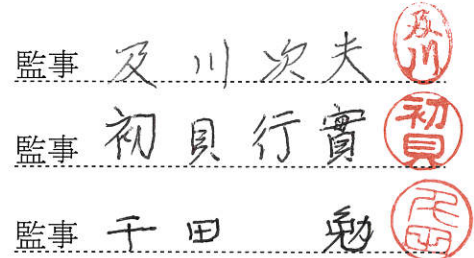 監事 及川次夫 及川
監事 初貝行實 初貝
監事 千田 勉 千田